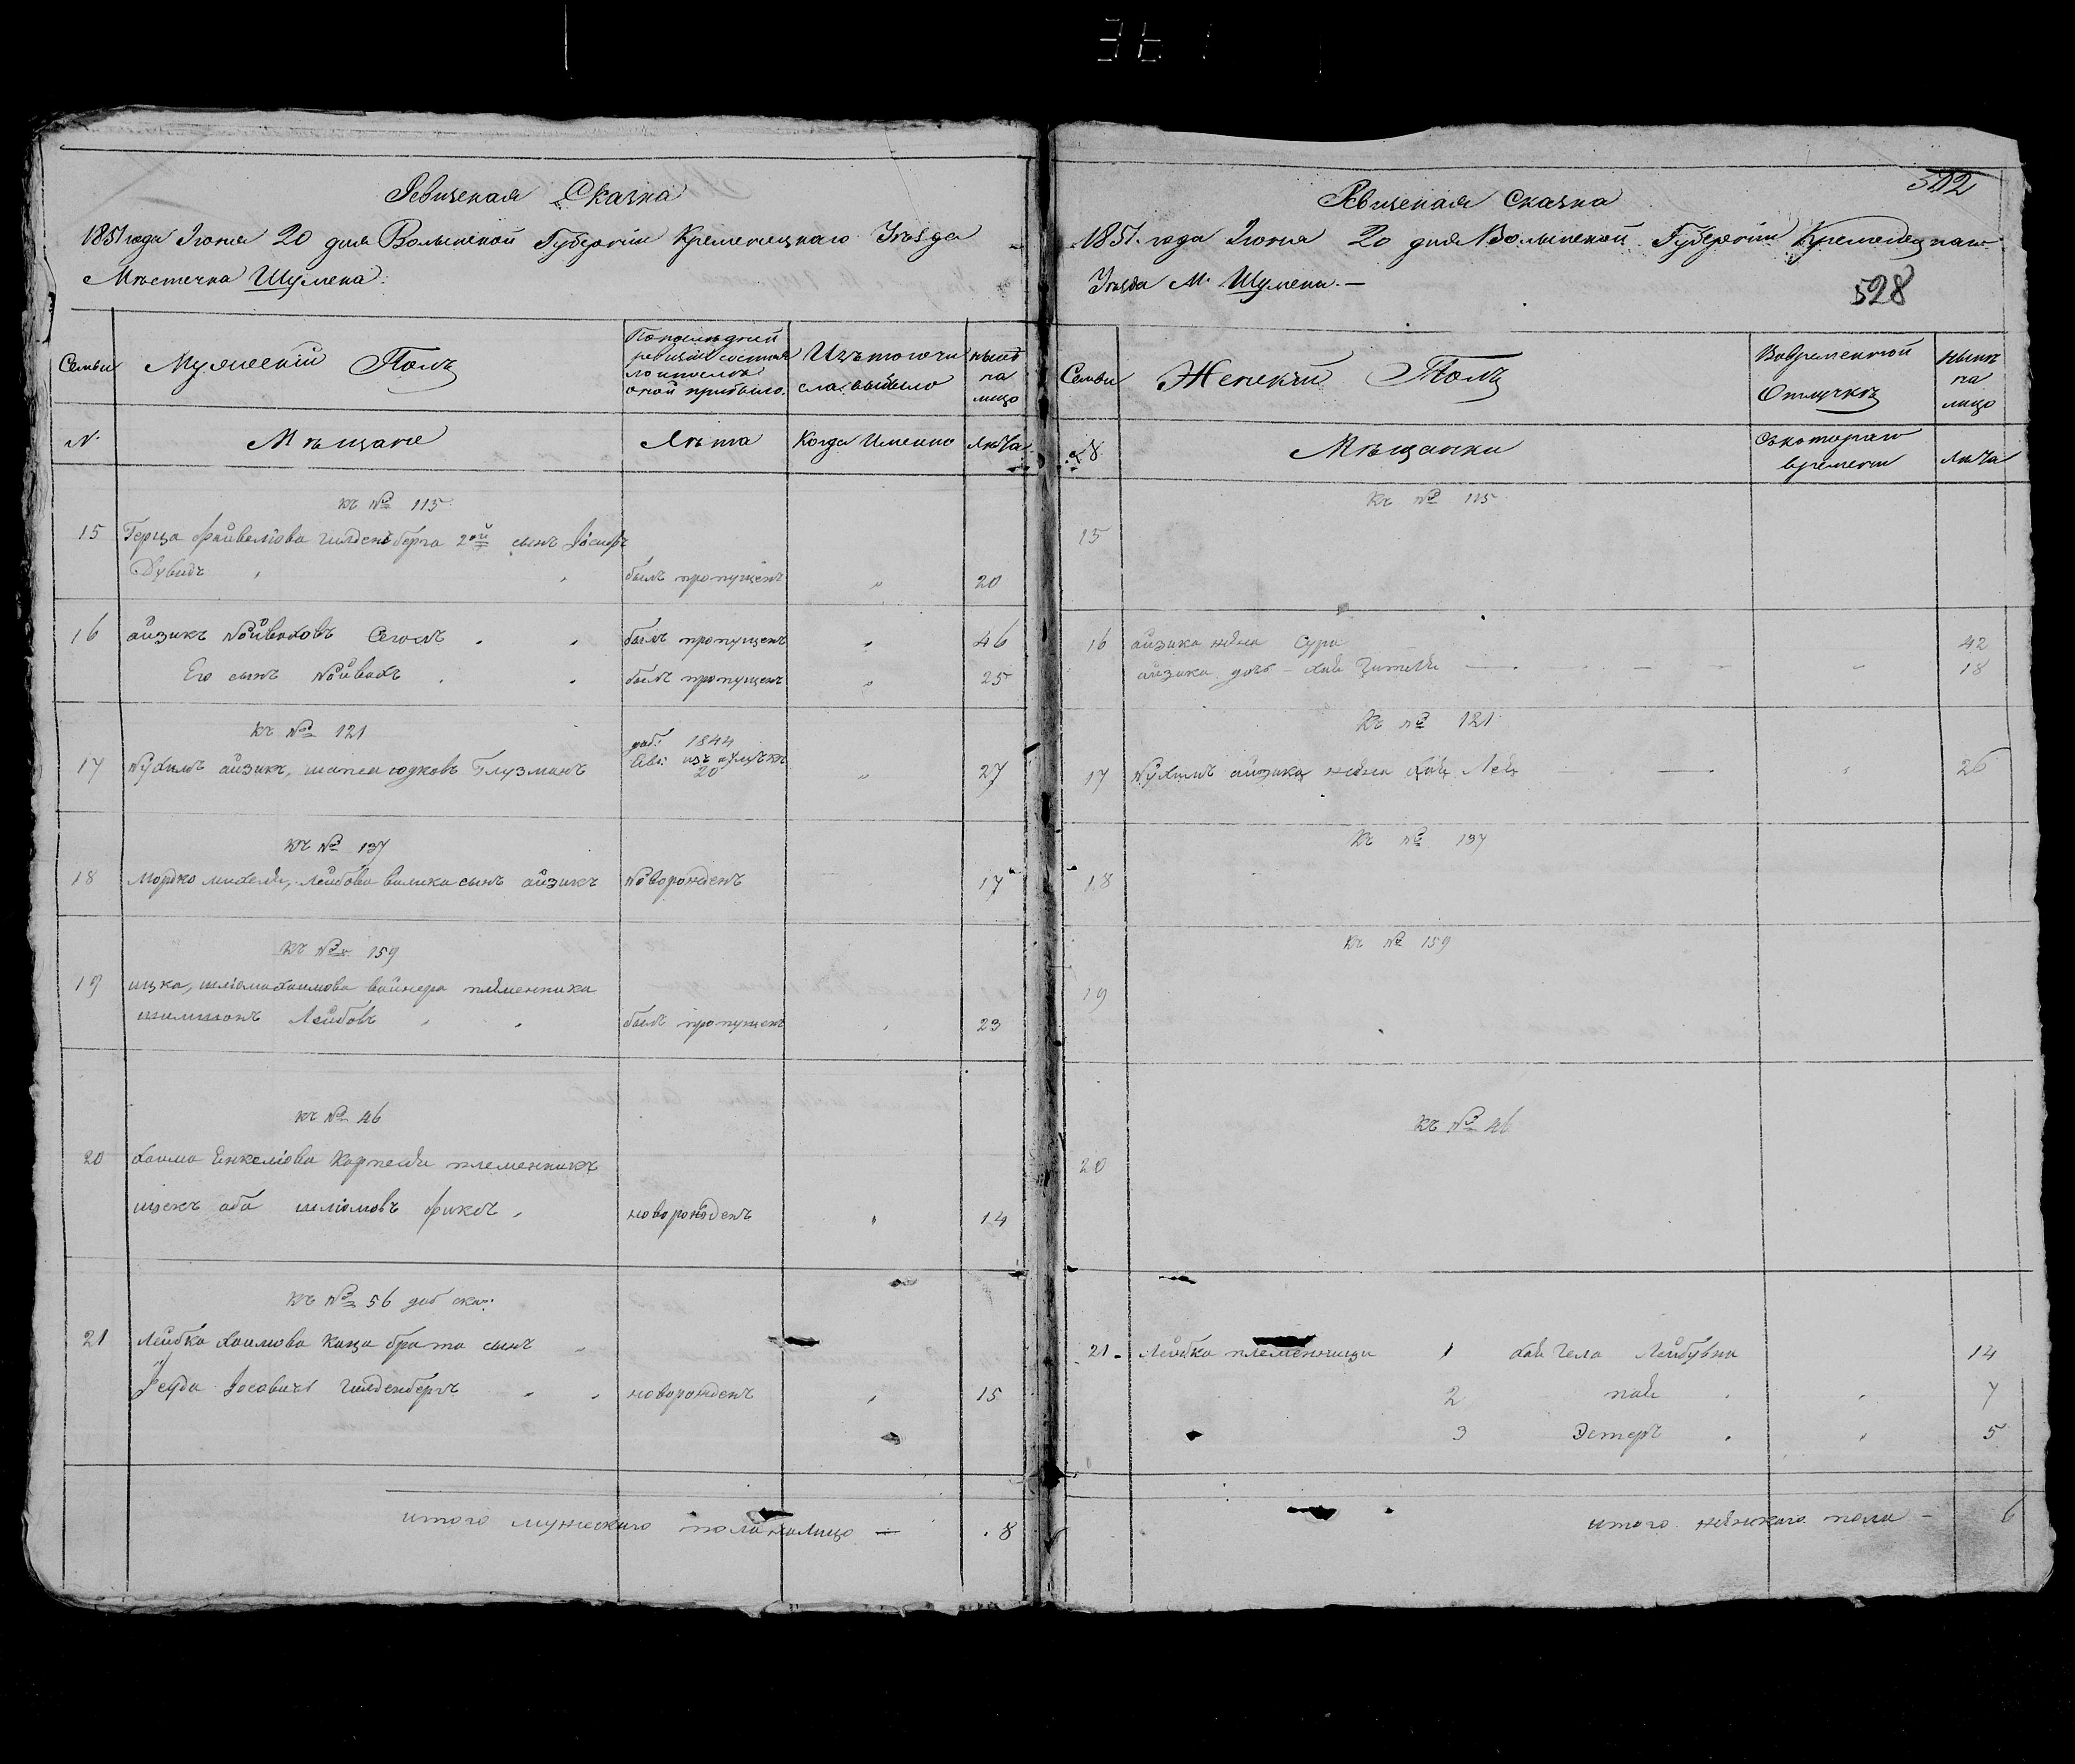 Ревизская Сказка
1851 года Июня 20 дня Волынской Губернии Кременецкаго Уѣзда
Мѣстечка Шумска.
Семьи
Мужескій Полъ
По последней ревизіи состояло и после оной прибыло.
Изъ того числа выбыло
нынѣ на лицо
№
Мѣщане
Лѣта
Когда Именно
Лѣта
къ № 115
15 Герца Файвелiова Гилденберга 2ой сынъ Іосифъ
Дувидъ был пропущенъ 20
16 айзикъ Нойваховъ был пропущенъ 46
Его сынъ Нойвахъ был пропущенъ 25
Къ № 121
17 Нухимъ айзикъ, юдковъ Глузманъ
доб: 1844
20
27
къ № 137
18 Мордко Лейбова сынъ айзикъ Новорожденъ 17
къ № 159
19 ицка, шліома хаимова вайнера племенника
шимшонъ Лейбовъ был пропущенъ 23
къ № 46
20 хаима Енкеліова племенникъ
аба шліомовъ новорожденъ 14
къ № 56 доб ска:
21 Лейбка хаимова Каца брата сынъ
Іосовичъ Гилденбергъ новорожденъ 15
итого мужескаго пола налицо — 8
502
Ревизская Сказка
1851. года Июня 20 дня Волынской Губернии Кременецкаго
Уѣзда М. Шумска. —
528
Семьи
Женскій Полъ
Во временной Отлучкѣ
нынѣ на лицо
№
Мѣщанки
Съ котораго времени
Лѣта
Къ № 115
15
16 айзика жена Сура 42
айзика дочь – 18
Къ № 121
17 Нухимъ айзика жена хая Лея 26
Къ № 137
18
Къ № 159
19
Къ № 46
20
21 Лейбка племенници 1 Лейбувна 14
2 7
3 Эстеръ 5
итого женскаго пола – 6